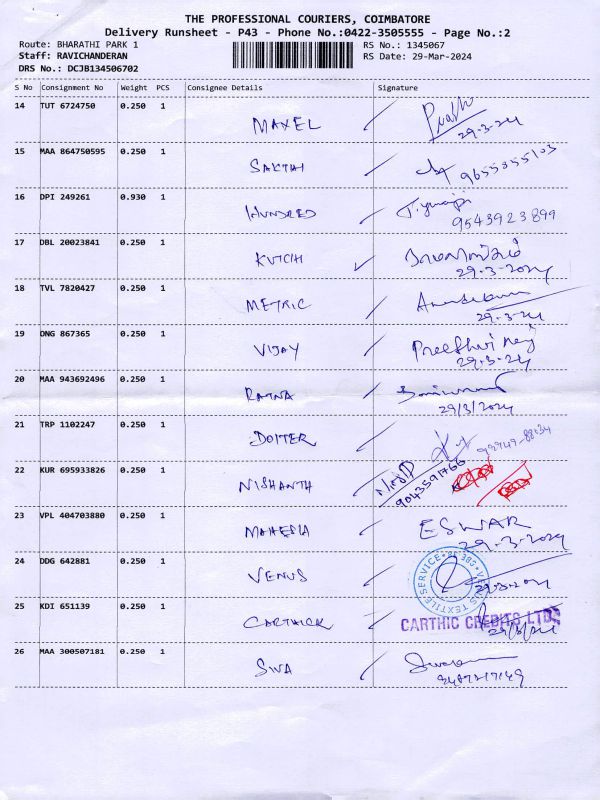 THE PROFESSIONAL COURIERS, COIMBATORE
Delivery Runsheet - P43 - Phone No.:0422-3505555 - Page No.:2
Route: BHARATHI PARK 1 RS No.: 1345067
Staff: RAVICHANDERAN RS Date: 29-Mar-2024
DRS No.: DCJB134506702
S No Consignment No Weight PCS Consignee Details Signature
14 TUT 6724750 0.250 1
MAXEL
29-3-24
15 MAA 864750595 0.250 1
SAKTHI 9655355103
16 DPI 249261 0.930 1
HUNDRED
9543923899
17 DBL 20023841 0.250 1
KUTCH
29-3-2024
18 TVL 7820427 0.250 1
METRIC
29-3-24
19 DNG 867365 0.250 1
VIJAY Preethvi Raj
29-3-24
20 MAA 943692496 0.250 1
RATNA
29/3/2024
21 TRP 1102247 0.250 1
22 KUR 695933826 0.250 1
NISHANTH
9043591766
23 VPL 404703880 0.250 1
ESWAR
29-3-2024
24 DDG 642881 0.250 1
VENUS
VENUS TEXTILE SERVICE
29-3-2024
25 KDI 651139 0.250 1
CARTHICK
CARTHIC CREDITS LTD
26 MAA 300507181 0.250 1
SWA